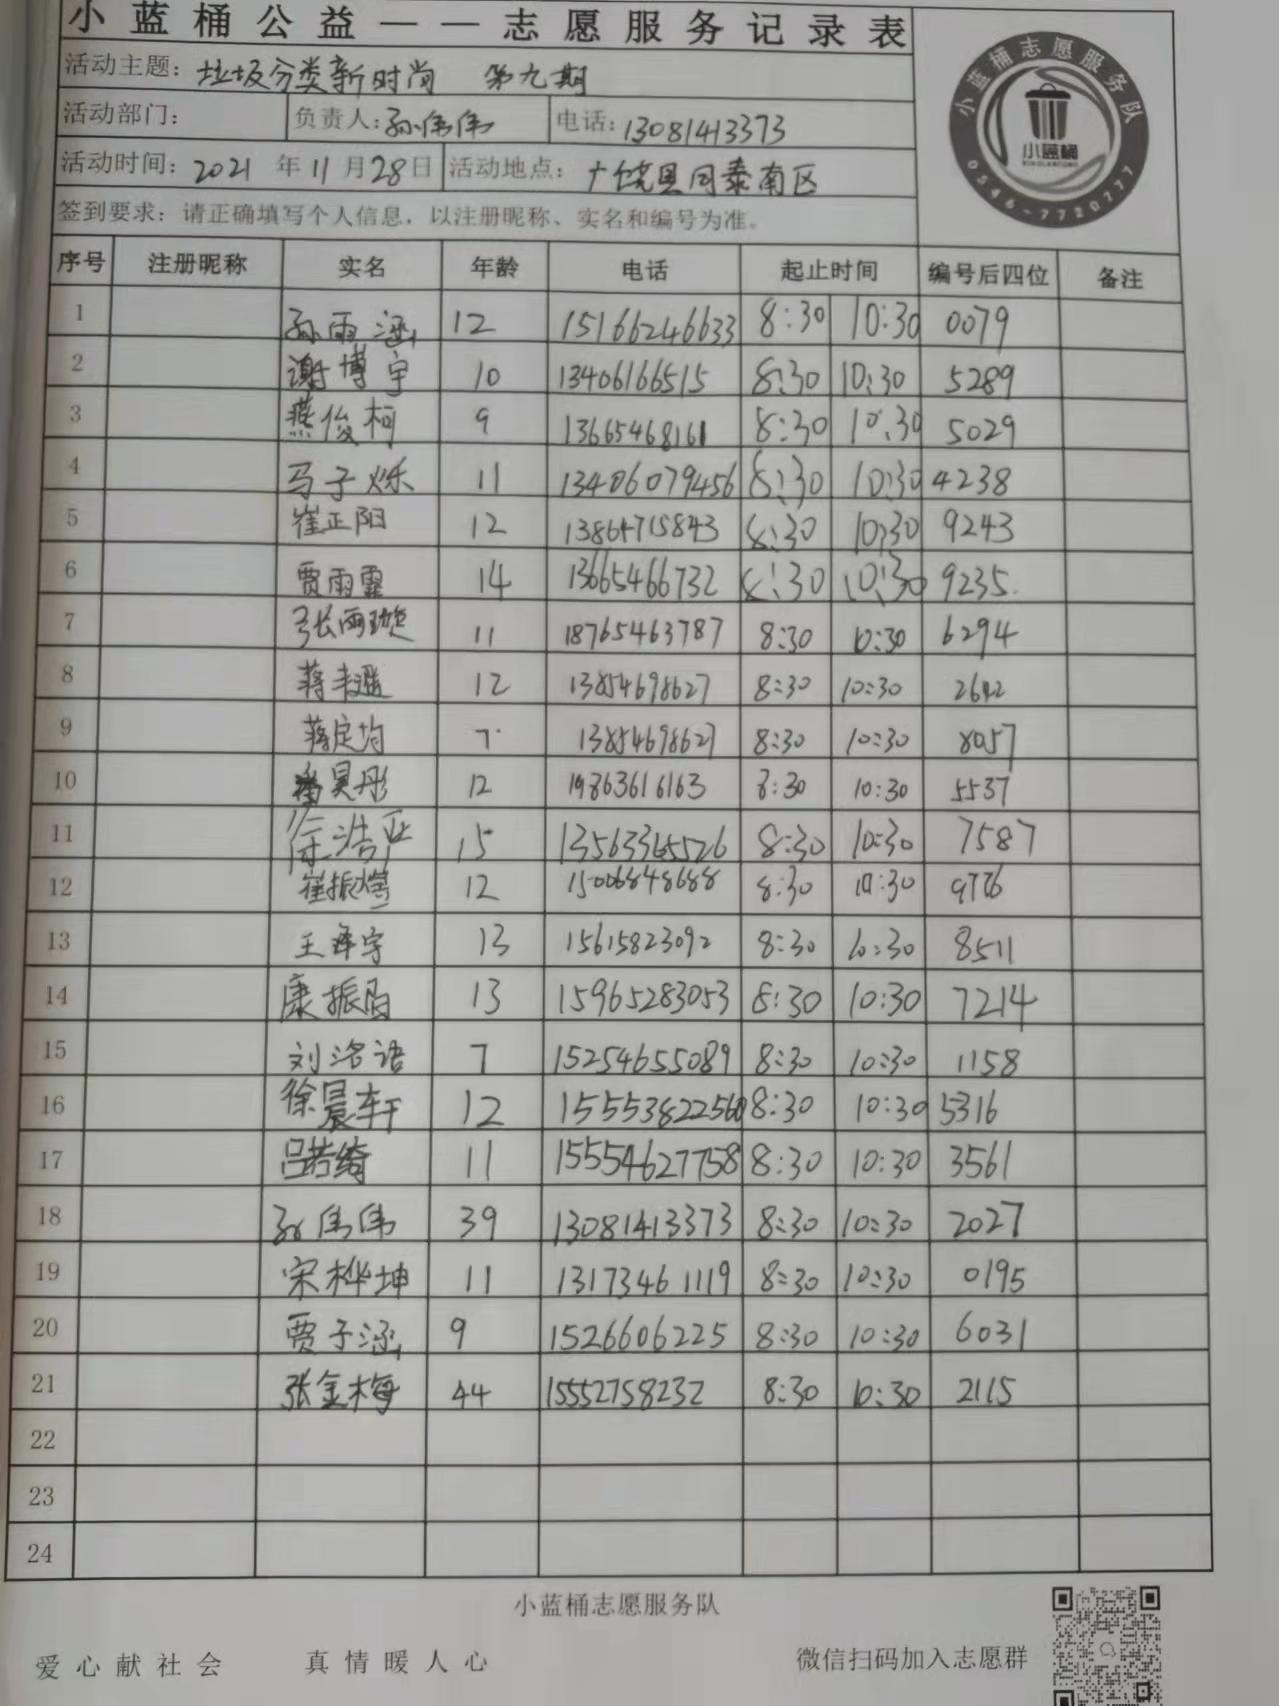 小蓝桶公益——志愿服务记录表
活动主题：垃圾分类新时尚 第九期
活动部门： 负责人：孙伟伟 电话：13081413373
活动时间：2021年11月28日 活动地点：广饶县同泰南区
签到要求：请正确填写个人信息，以注册昵称、实名和编号为准。
小蓝桶志愿服务队
小蓝桶
0546-7720777
序号 注册昵称 实名 年龄 电话 起止时间 编号后四位 备注
1 孙雨涵 12 15166246633 8:30 10:30 0079
2 谢博宇 10 13406166515 8:30 10:30 5289
3 燕俊柯 9 13665468161 8:30 10:30 5029
4 马子烁 11 13406079456 8:30 10:30 4238
5 崔正阳 12 13864715843 8:30 10:30 9243
6 贾雨霏 14 13665466732 8:30 10:30 9235
7 张雨璇 11 18765463787 8:30 10:30 6294
8 蒋 12 13854698627 8:30 10:30 2642
9 蒋定均 7 13854698627 8:30 10:30 8057
10 昊彤 12 19863616163 8:30 10:30 5537
11 徐浩 15 13563365526 8:30 10:30 7587
12 崔振 12 15006848688 8:30 10:30 9776
13 王泽宇 13 15615823092 8:30 10:30 8511
14 康振 13 15965283053 8:30 10:30 7214
15 刘洺语 7 15254655089 8:30 10:30 1158
16 徐晨轩 12 15553822560 8:30 10:30 5316
17 吕若绮 11 15554627758 8:30 10:30 3561
18 孙伟伟 39 13081413373 8:30 10:30 2027
19 宋桦坤 11 13173461119 8:30 10:30 0195
20 贾子涵 9 1526606225 8:30 10:30 6031
21 张金梅 44 15552758232 8:30 10:30 2115
22
23
24
小蓝桶志愿服务队
爱心献社会 真情暖人心 微信扫码加入志愿群